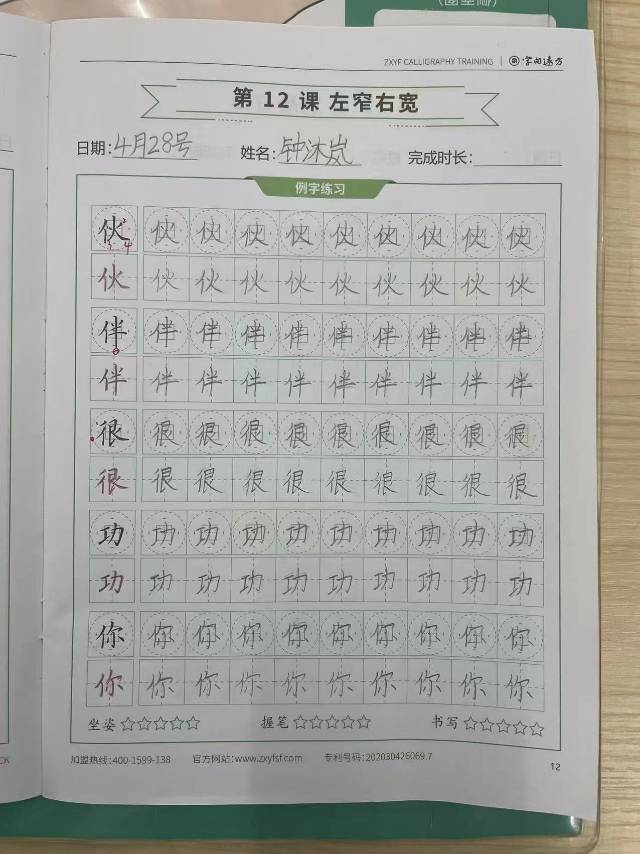 ZXYF CALLIGRAPHY TRAINING | 字如远方
第 12 课 左窄右宽
日期：4月28号 姓名：钟沐岚 完成时长：
例字练习
伙 伙 伙 伙 伙 伙 伙 伙 伙 伙
伙 伙 伙 伙 伙 伙 伙 伙 伙 伙
伴 伴 伴 伴 伴 伴 伴 伴 伴 伴
伴 伴 伴 伴 伴 伴 伴 伴 伴 伴
很 很 很 很 很 很 很 很 很 很
很 很 很 很 很 很 很 很 很 很
功 功 功 功 功 功 功 功 功 功
功 功 功 功 功 功 功 功 功 功
你 你 你 你 你 你 你 你 你 你
你 你 你 你 你 你 你 你 你 你
坐姿 ☆☆☆☆☆ 握笔 ☆☆☆☆☆ 书写 ☆☆☆☆☆
加盟热线：400-1599-138 官方网站：www.zxyfsf.com 专利号码：202030426069.7
12